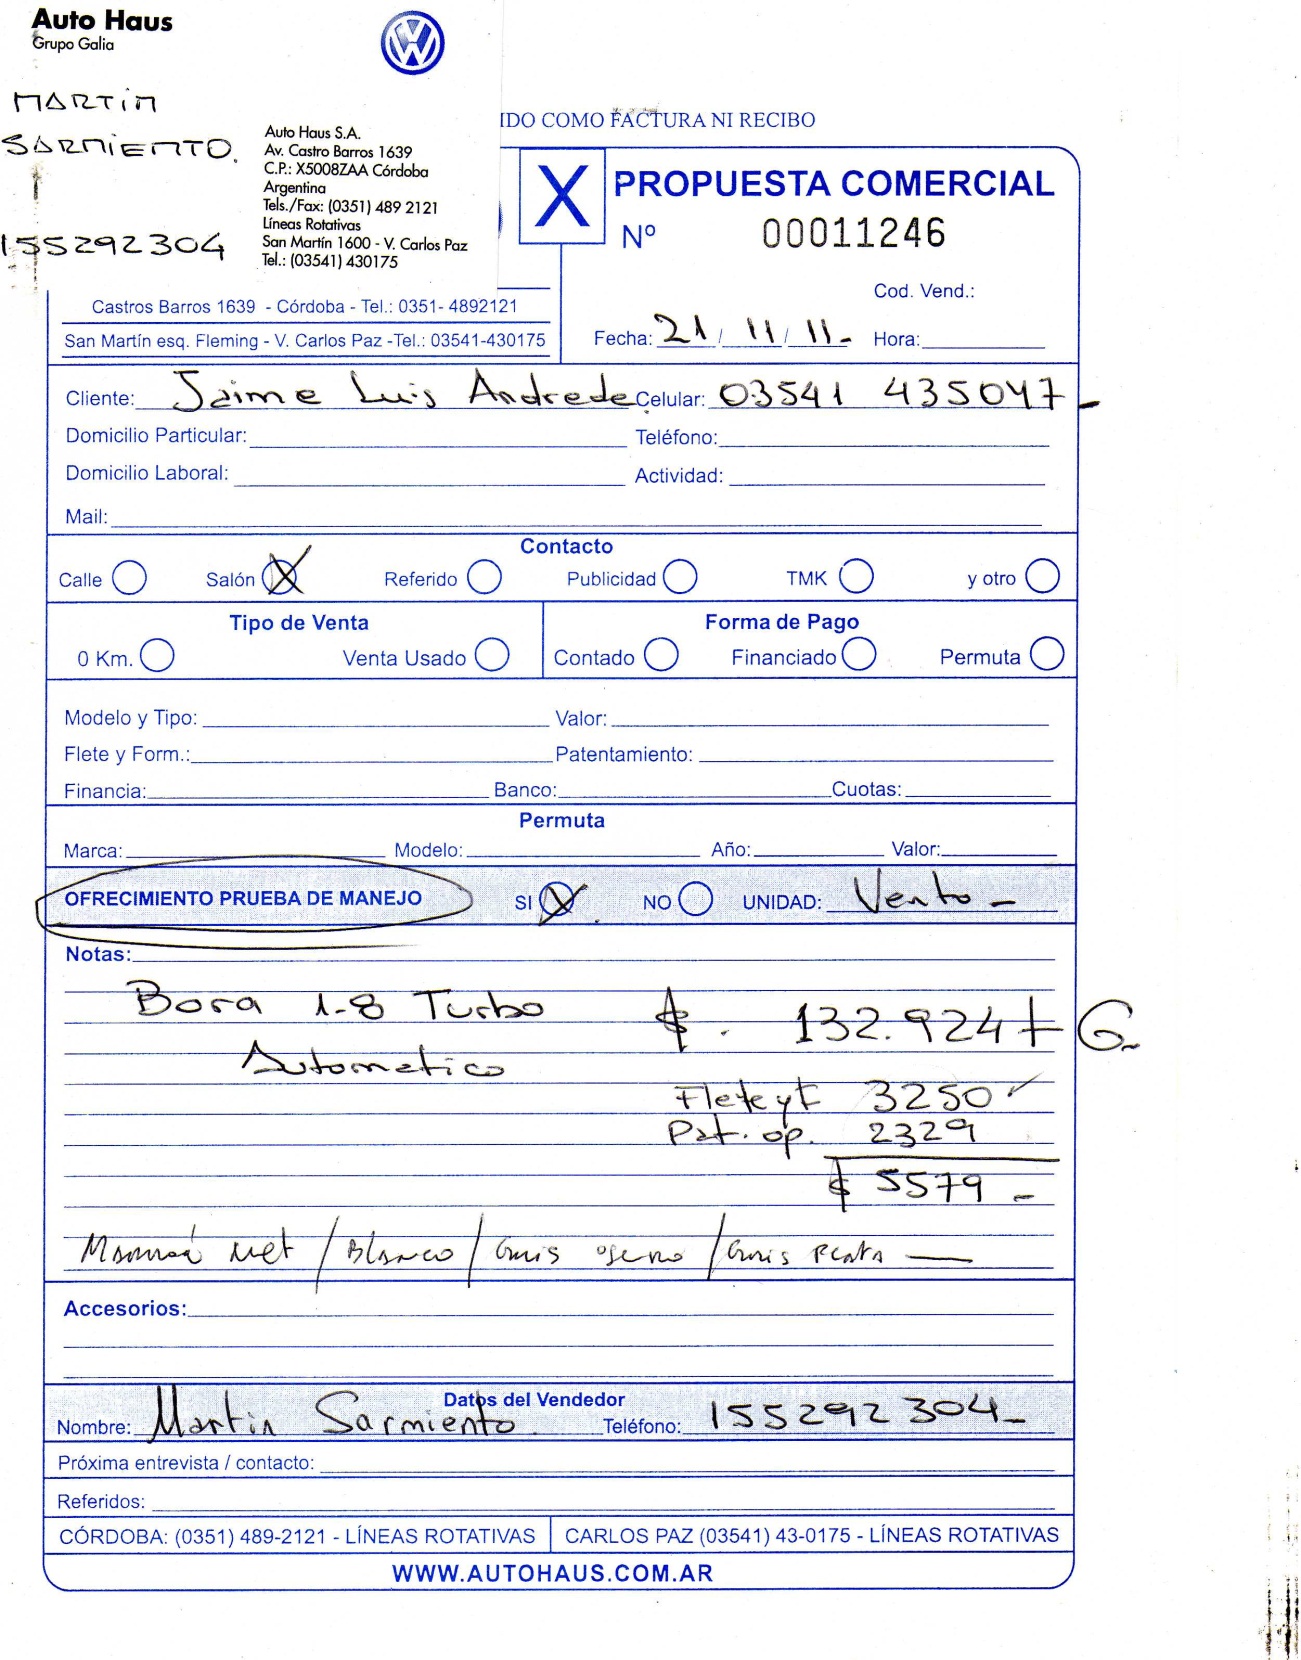 Auto Haus
Grupo Galia
MARTIN
SARMIENTO.
155292304
Auto Haus S.A.
Av. Castro Barros 1639
C.P.: X5008ZAA Córdoba
Argentina
Tels./Fax: (0351) 489 2121
Líneas Rotativas
San Martín 1600 - V. Carlos Paz
Tel.: (03541) 430175
IDO COMO FACTURA NI RECIBO
X PROPUESTA COMERCIAL
Nº 00011246
Cod. Vend.:
Castros Barros 1639 - Córdoba - Tel.: 0351- 4892121
San Martín esq. Fleming - V. Carlos Paz -Tel.: 03541-430175
Fecha: 21 / 11 / 11 - Hora:
Cliente: Jaime Luis Andrede Celular: 03541 435047 -
Domicilio Particular: Teléfono:
Domicilio Laboral: Actividad:
Mail:
Contacto
Calle Salón X Referido Publicidad TMK y otro
Tipo de Venta Forma de Pago
0 Km. Venta Usado Contado Financiado Permuta
Modelo y Tipo: Valor:
Flete y Form.: Patentamiento:
Financia: Banco: Cuotas:
Permuta
Marca: Modelo: Año: Valor:
OFRECIMIENTO PRUEBA DE MANEJO SI X NO UNIDAD: Vento -
Notas:
Bora 1-8 Turbo $. 132.924 + G.
Automatico
Flete yf 3250
Pat. op. 2329
$ 5579 -
met / Blanco / Gris oscuro / Gris Plata
Accesorios:
Datos del Vendedor
Nombre: Martin Sarmiento. Teléfono: 155292304-
Próxima entrevista / contacto:
Referidos:
CÓRDOBA: (0351) 489-2121 - LÍNEAS ROTATIVAS CARLOS PAZ (03541) 43-0175 - LÍNEAS ROTATIVAS
WWW.AUTOHAUS.COM.AR